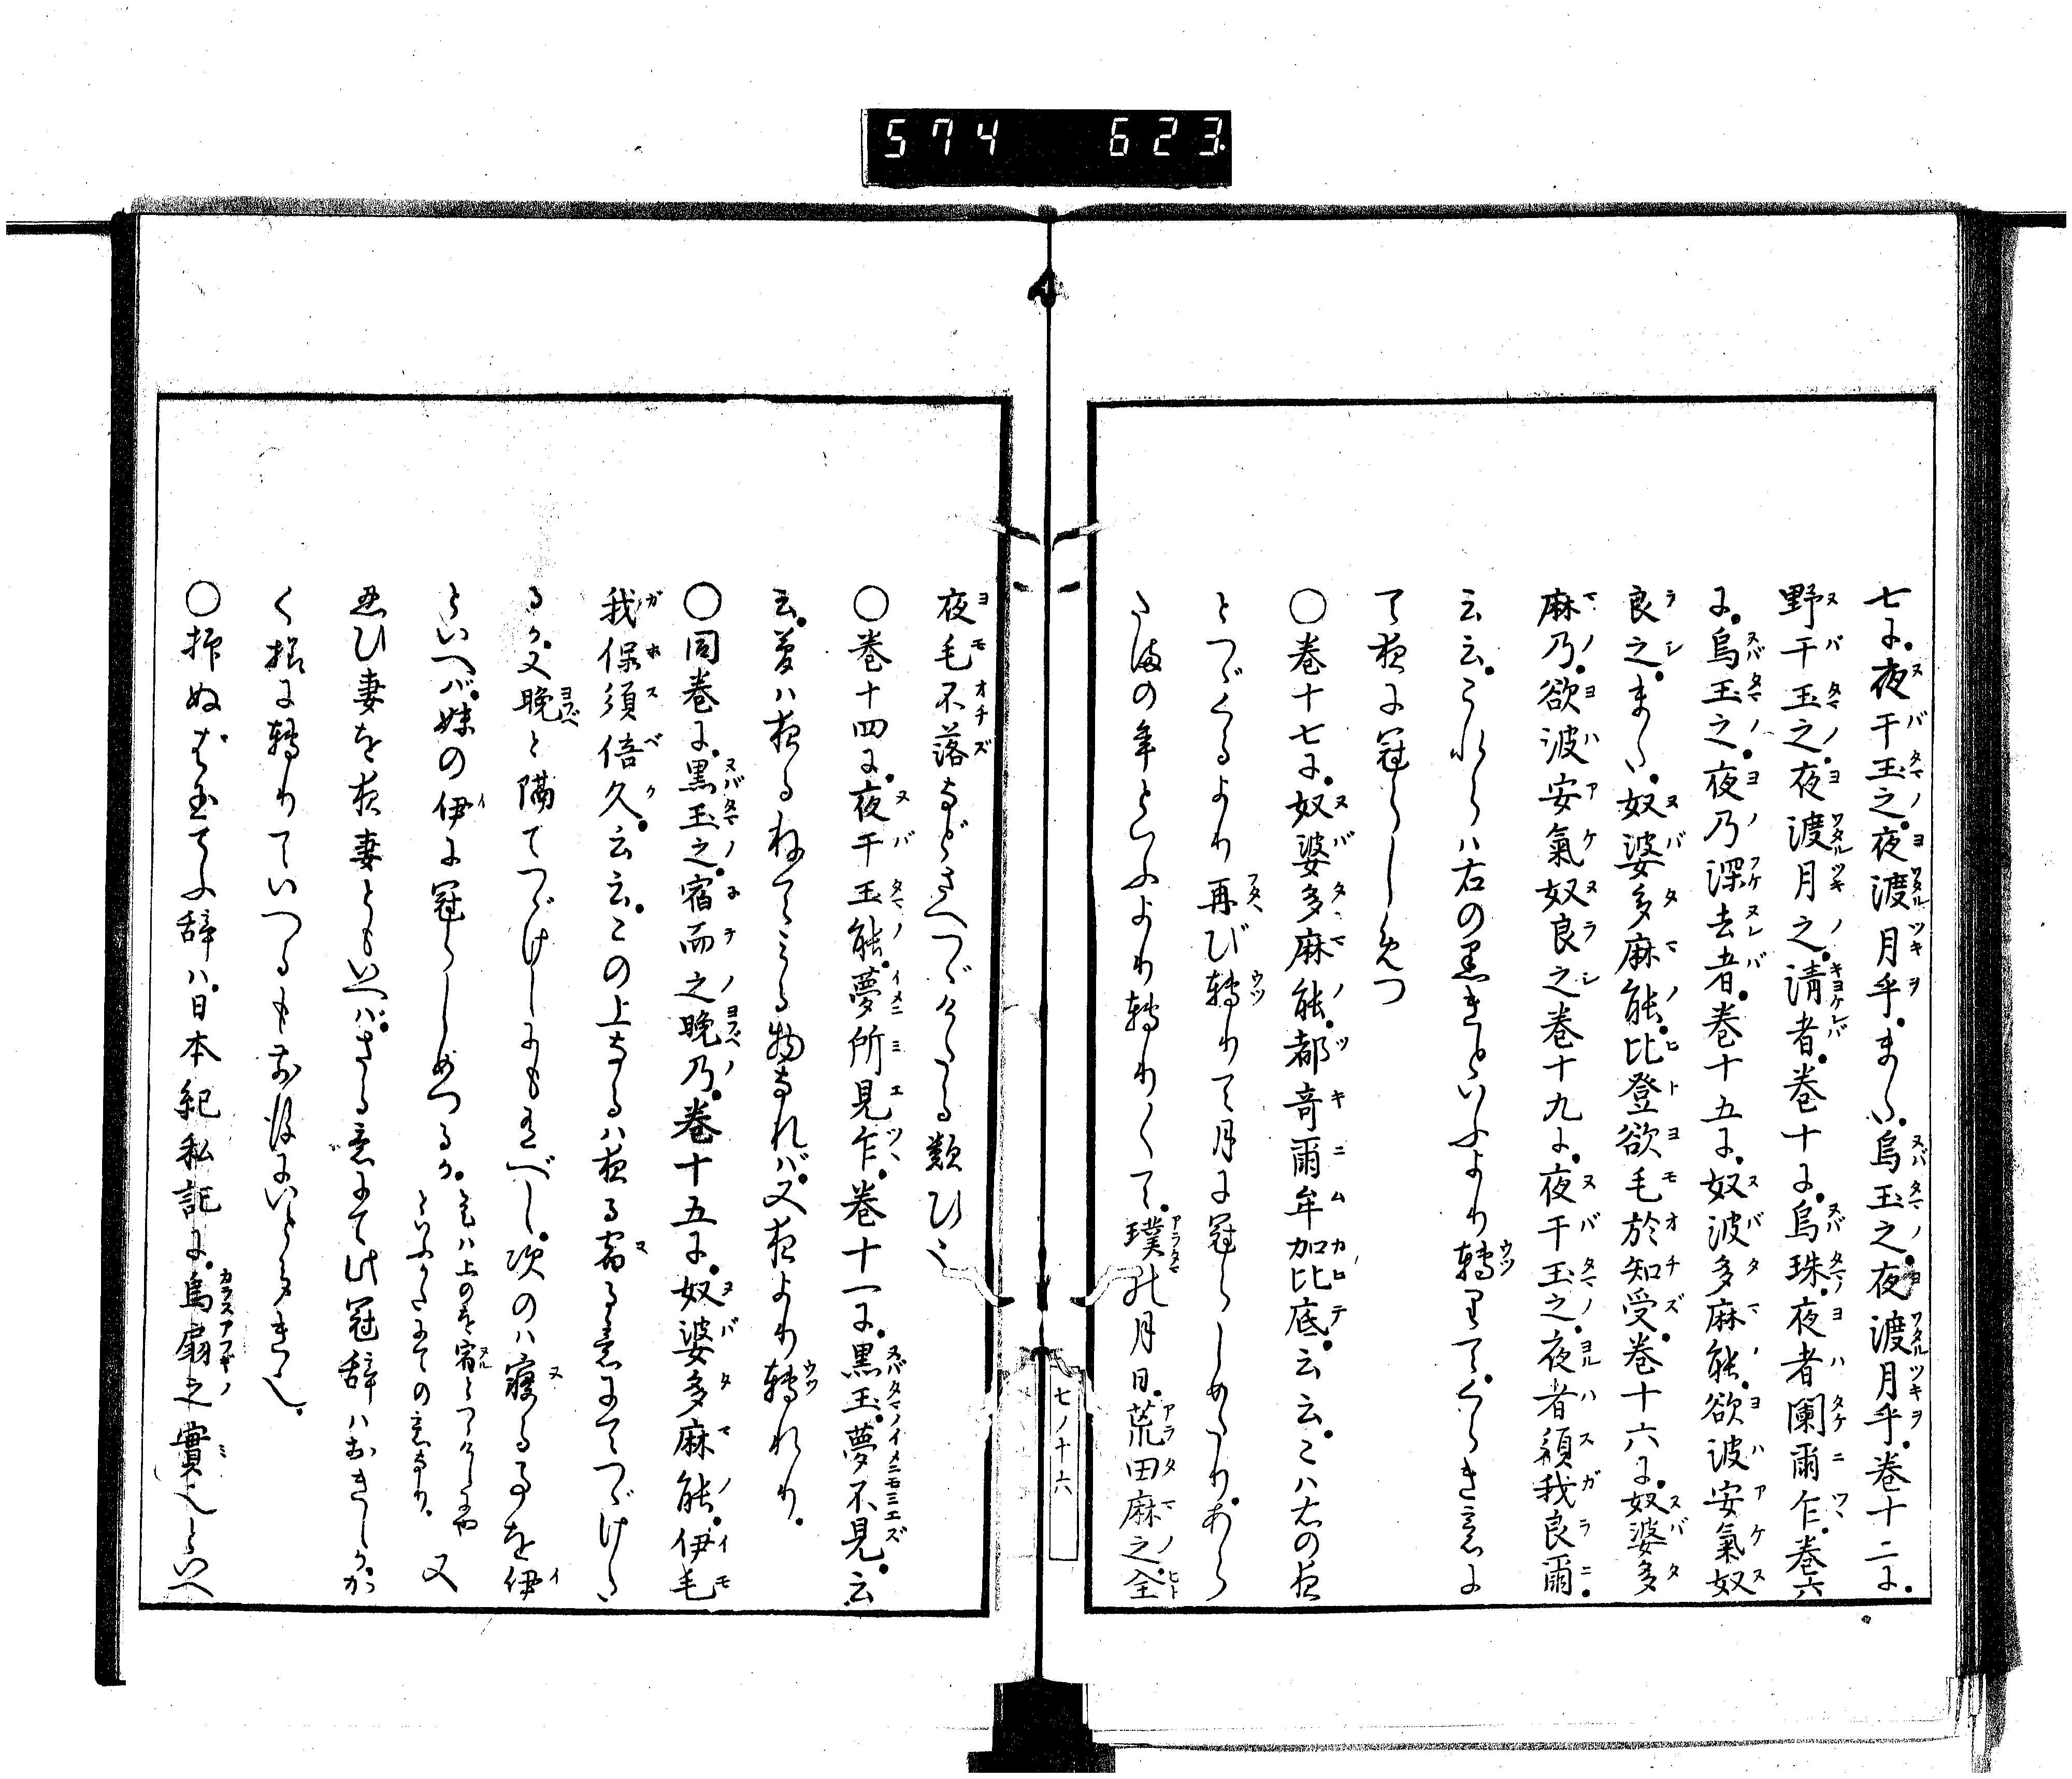 574 623
七に夜干玉之夜渡月乎また烏玉之夜渡月乎巻十二に
野干玉之夜渡月之清者巻十に烏珠夜者闌爾乍巻六
に烏玉之夜乃深去者巻十五に奴波多麻能欲波安氣奴
良之また奴婆多麻能比登欲毛於知受巻十六に奴婆多
麻乃欲波安氣奴良之巻十九に夜干玉之夜者須我良爾
云云これらハ右の黒きといふより轉りてくらき意に
て夜に冠らしめつ
〇巻十七に奴婆多麻能都奇爾牟加比底云云こハ右の夜
とつゞくるより再び轉りて月に冠らしめたりあら
たまの年といふより轉りて璞之月日荒田麻之全
七ノ十六
夜毛不落などさへつゞけたる類ひ也
〇巻十四に夜干玉能夢所見乍巻十一に黒玉夢不見云
云夢ハ夜るねてみる物なれバ又夜より轉れり
〇同巻に黒玉之宿而之晩乃巻十五に奴婆多麻能伊毛
我保須倍久云云この上なるハ夜る宿る意にてつゞけし
るか又晩と隔てつゞけしにも有べし次のハ寝る事を伊
といへバ妹の伊に冠らしめつるか
又
忍ひ妻を夜妻ともいへバさる意にて此冠辞ハおきしかか
く様に轉りていつるも前後にいと多き也
〇抑ぬば玉てふ辞ハ日本紀私記に烏扇之實也といへ